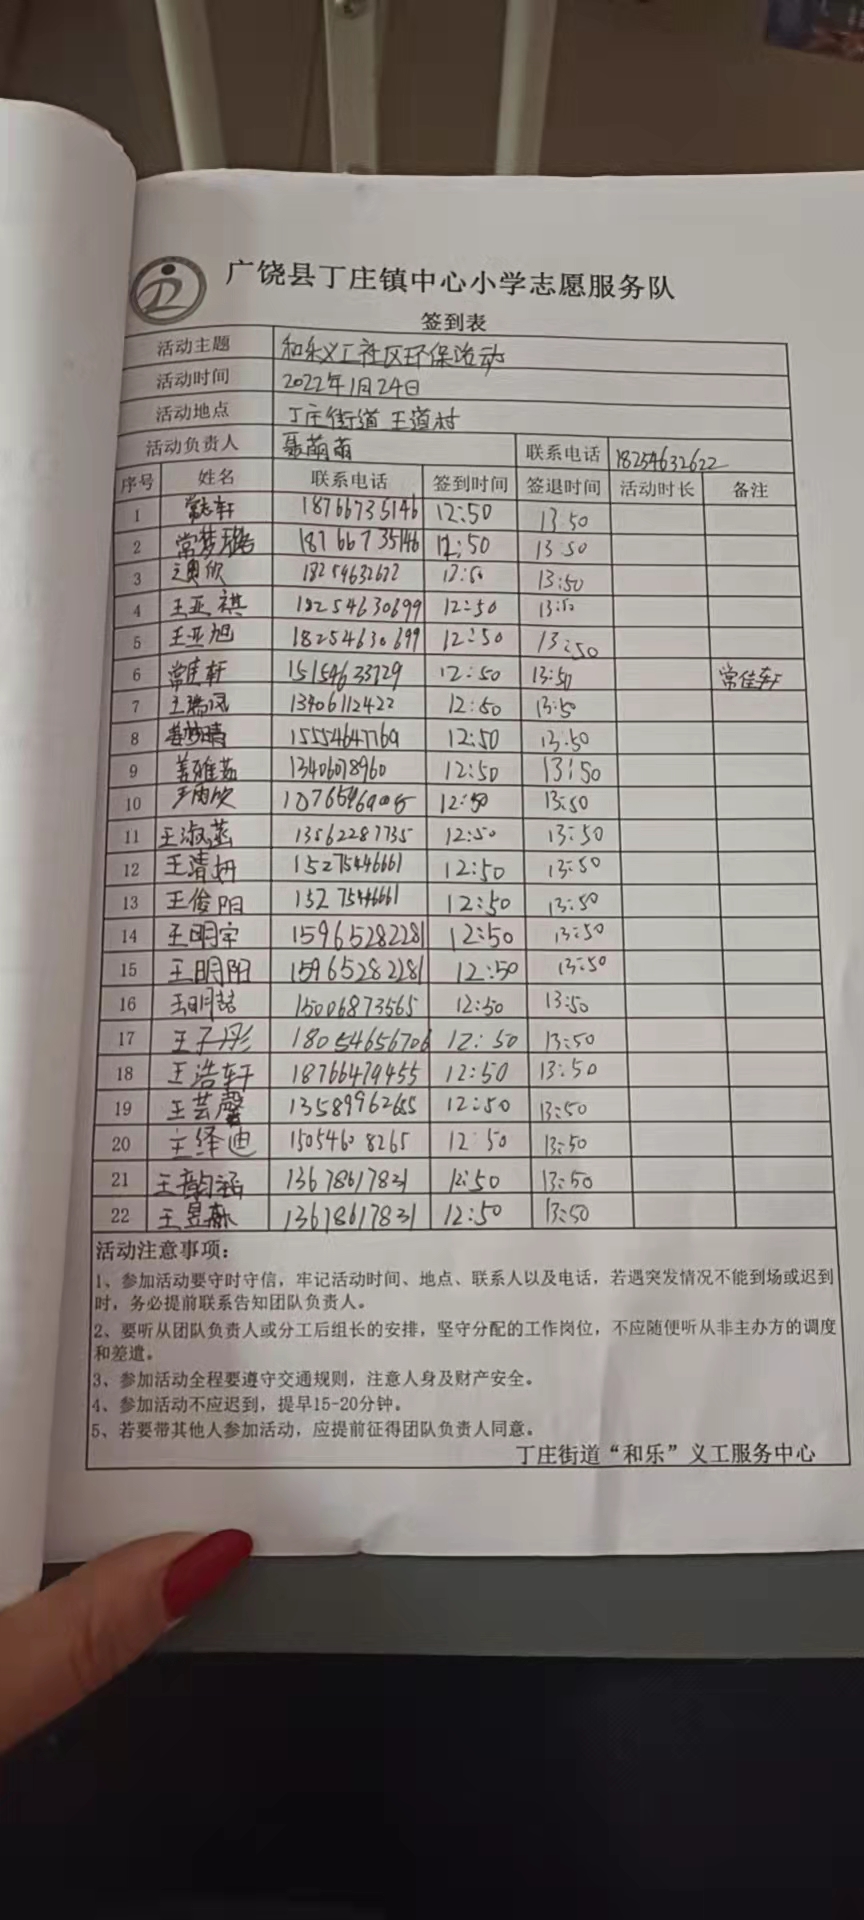 广饶县丁庄镇中心小学志愿服务队
签到表
活动主题 和乐义工社区环保活动
活动时间 2022年1月24日
活动地点 丁庄街道 王道村
活动负责人 聂萌萌 联系电话 18254632622
序号 姓名 联系电话 签到时间 签退时间 活动时长 备注
1 常志轩 18766735146 12:50 13:50
2 常梦璐 18766735146 12:50 13:50
3 18254632622 12:50 13:50
4 王亚祺 18254630699 12:50 13:50
5 王亚旭 18254630699 12:50 13:50
6 常佳轩 15154633729 12:50 13:50 常佳轩
7 王瑞凤 13406112422 12:50 13:50
8 15554647769 12:50 13:50
9 姜雅茹 13406078960 12:50 13:50
10 12:50 13:50
11 王淑菡 13562287735 12:50 13:50
12 王清妍 15275446661 12:50 13:50
13 王俊阳 15275446661 12:50 13:50
14 王明宇 15965282281 12:50 13:50
15 王明阳 15965282281 12:50 13:50
16 王明喆 15006873565 12:50 13:50
17 王子彤 18054656706 12:50 13:50
18 王浩轩 18766479455 12:50 13:50
19 王芸馨 13589962655 12:50 13:50
20 王绎迪 15054608265 12:50 13:50
21 王韵涵 13678617831 12:50 13:50
22 王昱霖 13678617831 12:50 13:50
活动注意事项：
1、参加活动要守时守信，牢记活动时间、地点、联系人以及电话，若遇突发情况不能到场或迟到
时，务必提前联系告知团队负责人。
2、要听从团队负责人或分工后组长的安排，坚守分配的工作岗位，不应随便听从非主办方的调度
和差遣。
3、参加活动全程要遵守交通规则，注意人身及财产安全。
4、参加活动不应迟到，提早15-20分钟。
5、若要带其他人参加活动，应提前征得团队负责人同意。
丁庄街道“和乐”义工服务中心